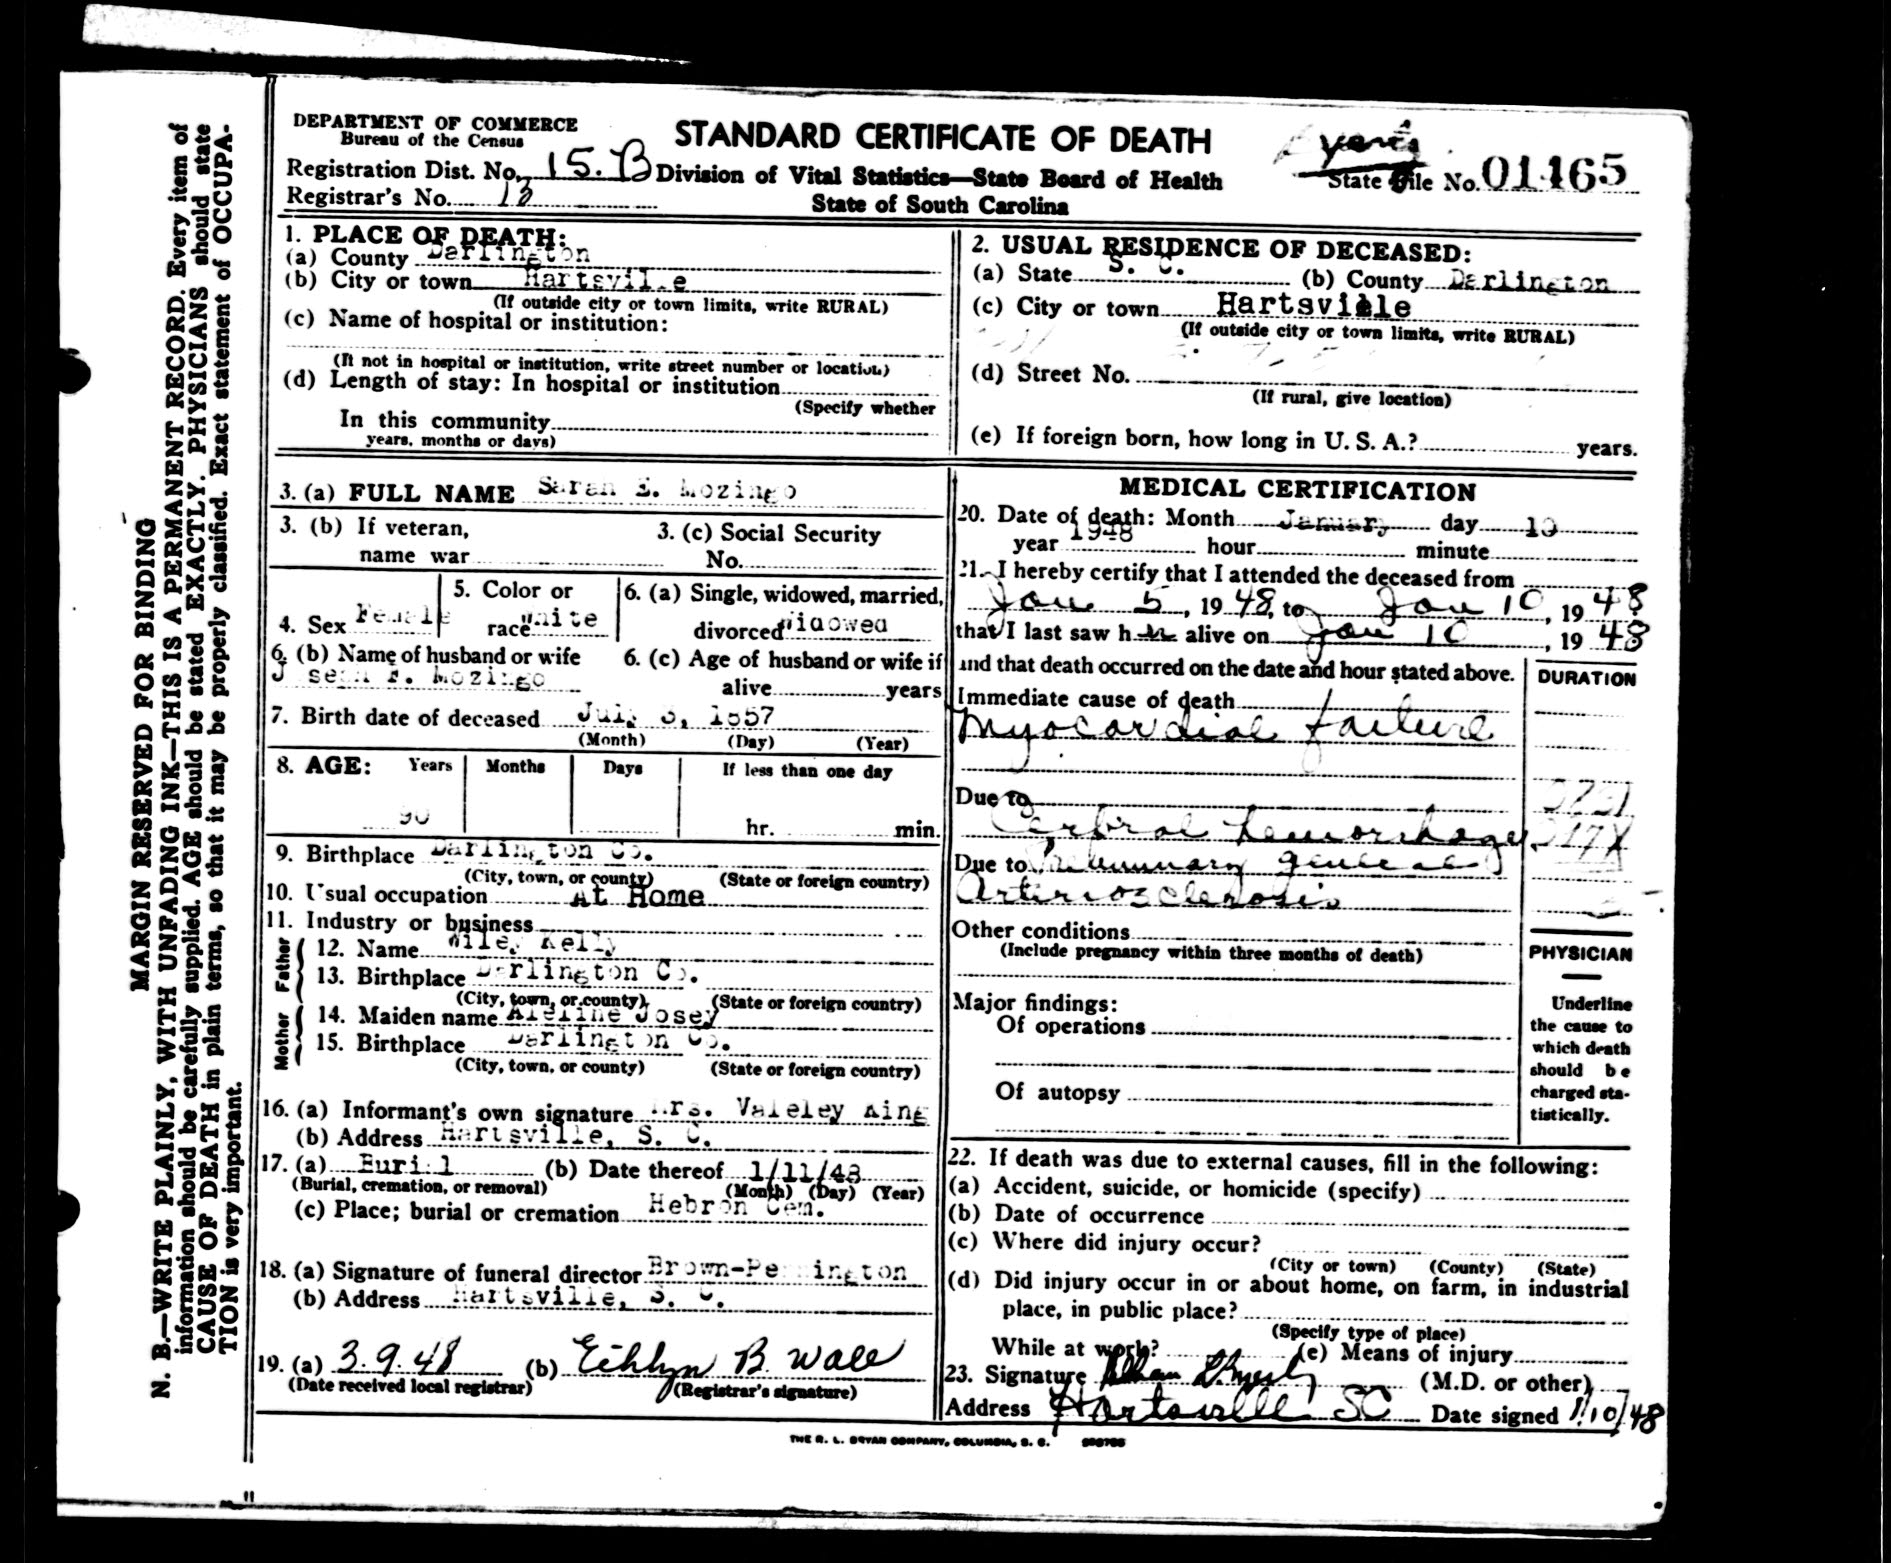 DEPARTMENT OF COMMERCE
Bureau of the Census
STANDARD CERTIFICATE OF DEATH
Registration Dist. No. 15.B
Division of Vital Statistics—State Board of Health
State File No. 01465
Registrar's No. 13
State of South Carolina
1. PLACE OF DEATH:
(a) County Darlington
(b) City or town Hartsville
(If outside city or town limits, write RURAL)
(c) Name of hospital or institution:
(If not in hospital or institution, write street number or location)
(d) Length of stay: In hospital or institution
(Specify whether
In this community
years, months or days)
2. USUAL RESIDENCE OF DECEASED:
(a) State S. C. (b) County Darlington
(c) City or town Hartsville
(If outside city or town limits, write RURAL)
(d) Street No.
(If rural, give location)
(e) If foreign born, how long in U. S. A.? years.
3. (a) FULL NAME Sarah E. Mozingo
3. (b) If veteran, 3. (c) Social Security
name war No.
5. Color or 6. (a) Single, widowed, married,
4. Sex Female race White divorced Widowed
6. (b) Name of husband or wife 6. (c) Age of husband or wife if
Joseph F. Mozingo alive years
7. Birth date of deceased July 3, 1857
(Month) (Day) (Year)
8. AGE: Years Months Days If less than one day
90 hr. min.
9. Birthplace Darlington Co.
(City, town, or county) (State or foreign country)
10. Usual occupation At Home
11. Industry or business
Father
12. Name Wiley Kelly
13. Birthplace Darlington Co.
(City, town, or county) (State or foreign country)
Mother
14. Maiden name Josey
15. Birthplace Darlington Co.
(City, town, or county) (State or foreign country)
16. (a) Informant's own signature Mrs. Valeley King
(b) Address Hartsville, S. C.
17. (a) Burial (b) Date thereof 1/11/48
(Burial, cremation, or removal) (Month) (Day) (Year)
(c) Place; burial or cremation Hebron Cem.
18. (a) Signature of funeral director Brown-Pennington
(b) Address Hartsville, S. C.
19. (a) 3.9.48 (b) B. Wall
(Date received local registrar) (Registrar's signature)
MEDICAL CERTIFICATION
20. Date of death: Month January day 10
year 1948 hour minute
21. I hereby certify that I attended the deceased from
Jan 5, 1948, to Jan 10, 1948
that I last saw her alive on Jan 10, 1948
and that death occurred on the date and hour stated above.
DURATION
Immediate cause of death
Myocardial failure
Due to
Cerbral hemorrhage
Due to Preliminary general
Arteriosclerosis
Other conditions
(Include pregnancy within three months of death)
PHYSICIAN
Major findings:
Of operations
Of autopsy
Underline
the cause to
which death
should be
charged sta-
tistically.
22. If death was due to external causes, fill in the following:
(a) Accident, suicide, or homicide (specify)
(b) Date of occurrence
(c) Where did injury occur?
(City or town) (County) (State)
(d) Did injury occur in or about home, on farm, in industrial
place, in public place?
(Specify type of place)
While at work? (e) Means of injury
23. Signature (M.D. or other)
Address Hartsville SC Date signed 1/10/48
THE R. L. BRYAN COMPANY, COLUMBIA, S. C.
MARGIN RESERVED FOR BINDING
N. B.—WRITE PLAINLY, WITH UNFADING INK—THIS IS A PERMANENT RECORD. Every item of
information should be carefully supplied. AGE should be stated EXACTLY. PHYSICIANS should state
CAUSE OF DEATH in plain terms, so that it may be properly classified. Exact statement of OCCUPA-
TION is very important.